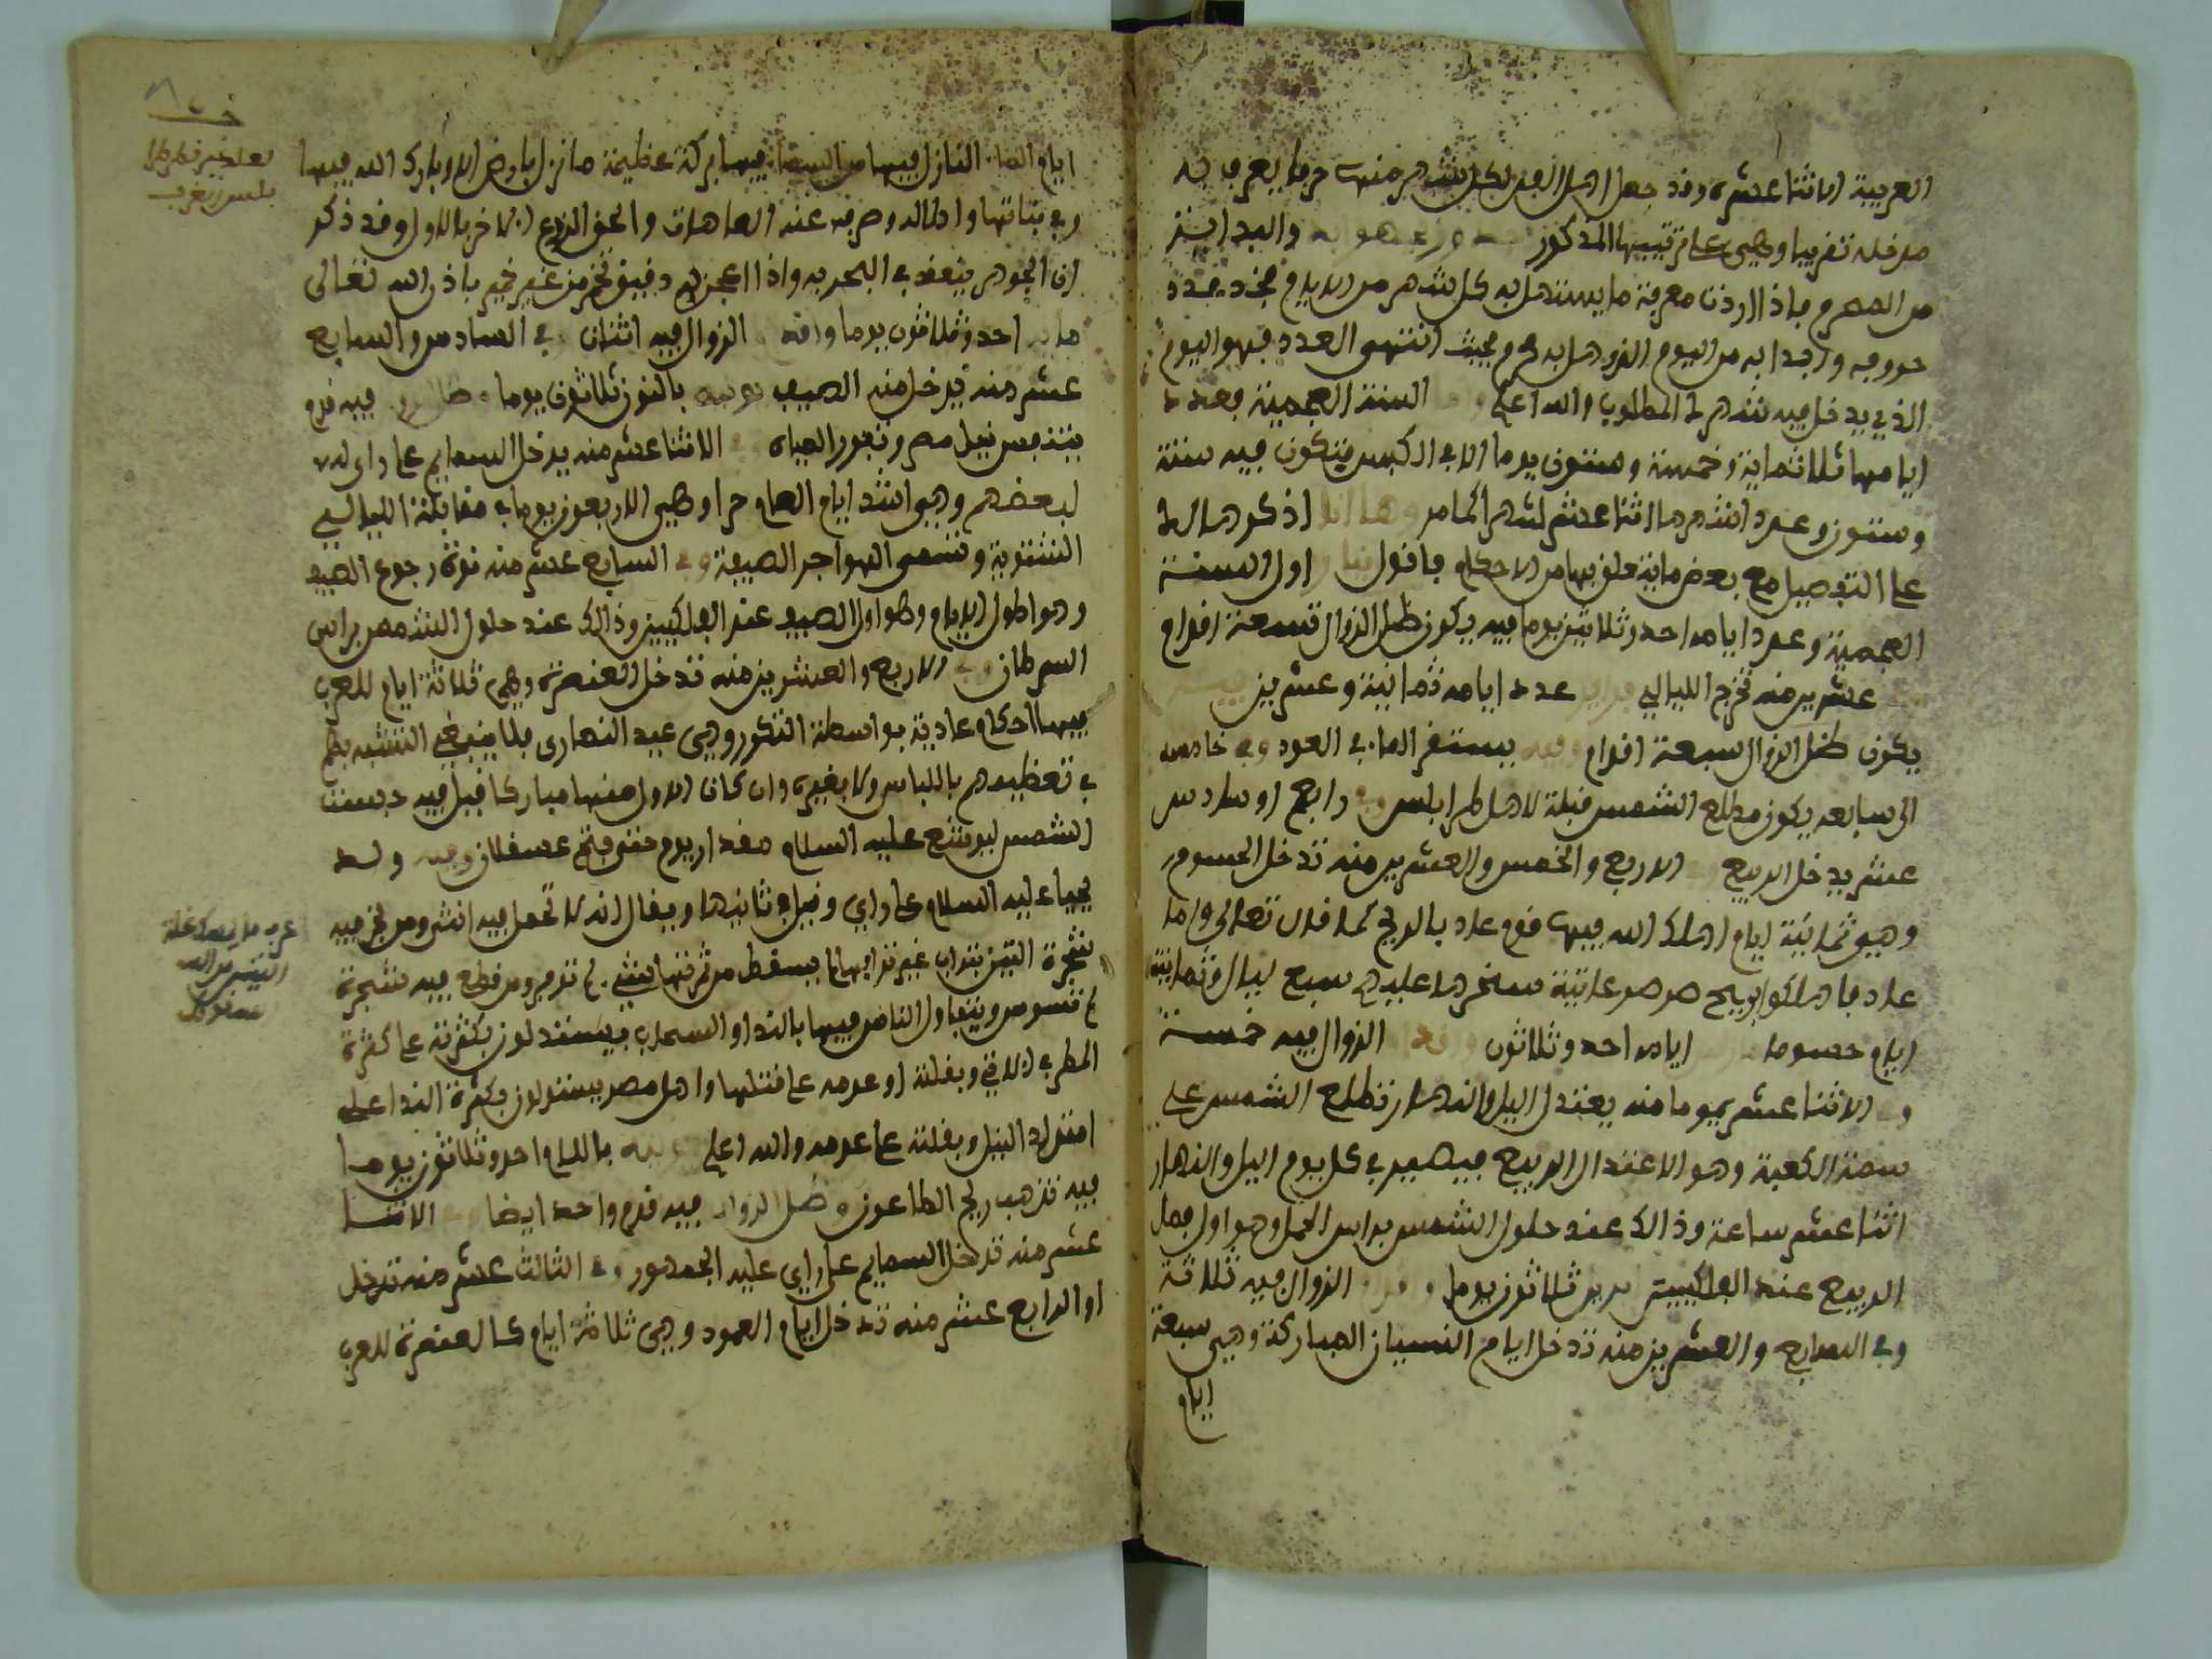 العربية الاثنا عشر وقد جعل اهل الفن لكل شهر منها حرفا يعرف به
مدخله تقريبا وهي على ترتيبها المذكور والبداية
من المحرم فاذا اردت معرفة ما يستهل به كل شهر من الايام فخذ عدد
حروفه وابدا به من اليوم الذي هل به محرم فحيث انتهى العدد فهو اليوم
الذي يدخل فيه شهرك المطلوب والله اعلم السنة العجمية فعدد
ايامها ثلاثماية وخمسة وستون يوما الا في الكبس فتكون فيه ستة
وستون وعدد اشهرها اثنا عشر شهرا كما مر وها انا اذكرها لك
على التفصيل مع بعض ما يتعلق بها من الاحكام فاقول اول السنة
العجمية وعدد ايامه احد وثلاثين يوما فيه يكون ظل الزوال تسعة اقدام
عشرين منه تخرج الليالي عدد ايامه ثمانية وعشرين
يكون ظل الزوال سبعة اقدام وفيه يستقر الماء في العود وفي خامسه
الى سابعه يكون مطلع الشمس قبلة لاهل طرابلس وفي رابع او سادس
عشر يدخل الربيع الاربع والخمس والعشرين منه تدخل الحسوم
وهي ثمانية ايام اهلك الله فيها قوم عاد بالريح كما قال تعالى واما
عاد فاهلكوا بريح صرصر عاتية سخرها عليهم سبع ليال وثمانية
ايام حسوما ايامه احد وثلاثون الزوال فيه خمسة
وفي الاثنا عشر يوما منه يعتدل اليل والنهار تطلع الشمس على
سمة الكعبة وهو الاعتدال الربيع فيصير في كل يوم اليل والنهار
اثنا عشر ساعة وذالك عند حلول الشمس براس الحمل وهو اول فصل
الربيع عند الفلكيين ابرير ثلاثون يوما الزوال فيه ثلاثة
وفي السابع والعشرين منه تدخل ايام النسيان المباركة وهي سبعة
ايام
ايام الماء النازل فيها من السماء فيها بركة عظيمة ما نزل بارض الا وبارك الله فيها
وفي نباتها واطاله وصرف عنه العاهات والحق الزرع الاخر بالاول وقد ذكر
ان الجوهر ينعقد في البحر به واذا اعجن به دقيق تخمر من غير خمير باذن الله تعالى
مايه احد وثلاثون يوما الزوال فيه اثنان في السادس والسابع
عشر منه يدخل منه الصيف يونيه بالنون ثلاثون يوما فيه قدم
يتنفس نيل مصر وتغور المياه وفي الاثنا عشر منه يدخل السمايم على راي
لبعضهم وهي اشد ايام العام حرا وهي الاربعون يوما في مقابلة الليالي
الشتوية وتسمى الهواجر الصيفة وفي السابع عشر منه نوة رجوع الصيف
وهو اطول الايام وهو اول الصيف عند الفلكيين وذالك عند حلول الشمس براس
السرطان وفي الاربع والعشرين منه تدخل العنصرة وهي ثلاثة ايام للعرب
فيها احكام عادية بواسطة التكرر وهي عيد النصارى فلا ينبغي التشبه بهم
في تعظيمهم باللباس ولا بغيره وان كان الاول منها مباركا قيل فيه حبست
الشمس ليوشع عليه السلام مقدار يوم حتى فتح عسقلان وفيه ولد
يحيا عليه السلام على راي وقيل في ثانيها ويقال انه لا تحمل فيه انثى ومن بخر فيه
شجرة التين بتراب غير ترابها لم يسقط من ثمرتها شيء ومن قطع فيه شجرة
لم تسوس ويتفاول الناس فيها بالندا والسحاب فيستدلون بكثرته على كثرة
المطر في الاتي وبقلته او عدمه على قلتها واهل مصر يستدلون بكثرة الندا على
امتداد النيل وبقلته على عدمه والله اعلم باللام احد وثلاثون يوما
فيه تذهب ريح الطاعون وظل الزوال فيه قدم واحد ايضا وفي الاثنا
عشر منه تدخل السمايم على راي عليه الجمهور وفي الثالث عشر منه تدخل
او الرابع عشر منه تدخل ايام العمود وهي ثلاثة ايام كالعنصرة للعرب